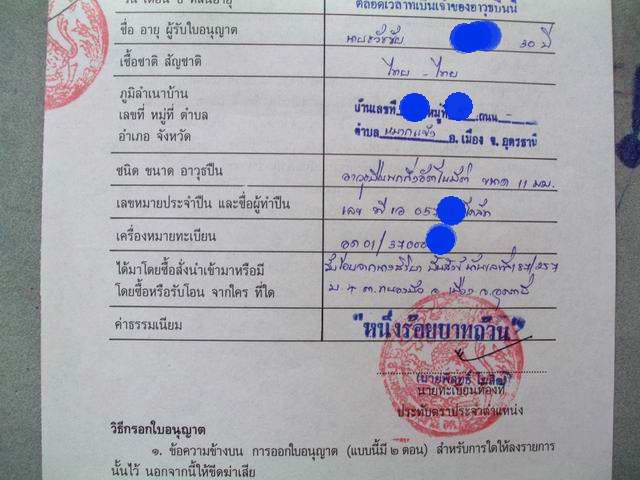 ตลอดเวลาที่เป็นเจ้าของอาวุธปืนนี้
ชื่อ อายุ ผู้รับใบอนุญาต
30 ปี
เชื้อชาติ สัญชาติ
ไทย - ไทย
ภูมิลำเนาบ้าน
เลขที่ หมู่ที่ ตำบล
อำเภอ จังหวัด
บ้านเลขที่ หมู่ที่ ถนน -
ตำบล หมากแข้ง อ. เมือง จ. อุดรธานี
ชนิด ขนาด อาวุธปืน
อาวุธปืนพกกึ่งอัตโนมัติ ขนาด 11 มม.
เลขหมายประจำปืน และชื่อผู้ทำปืน
เลข ที่ เอ 05 โคลท์
เครื่องหมายทะเบียน
อด 01/37000
ได้มาโดยซื้อสั่งนำเข้ามาหรือมี
โดยซื้อหรือรับโอน จากใคร ที่ใด
ค่าธรรมเนียม
"หนึ่งร้อยบาทถ้วน"
นายทะเบียนท้องที่
ประทับตราประจำตำแหน่ง
วิธีกรอกใบอนุญาต
๑. ข้อความข้างบน การออกใบอนุญาต (แบบนี้มี ๒ ตอน) สำหรับการใดให้ลงรายการ
นั้นไว้ นอกจากนี้ให้ขีดฆ่าเสีย